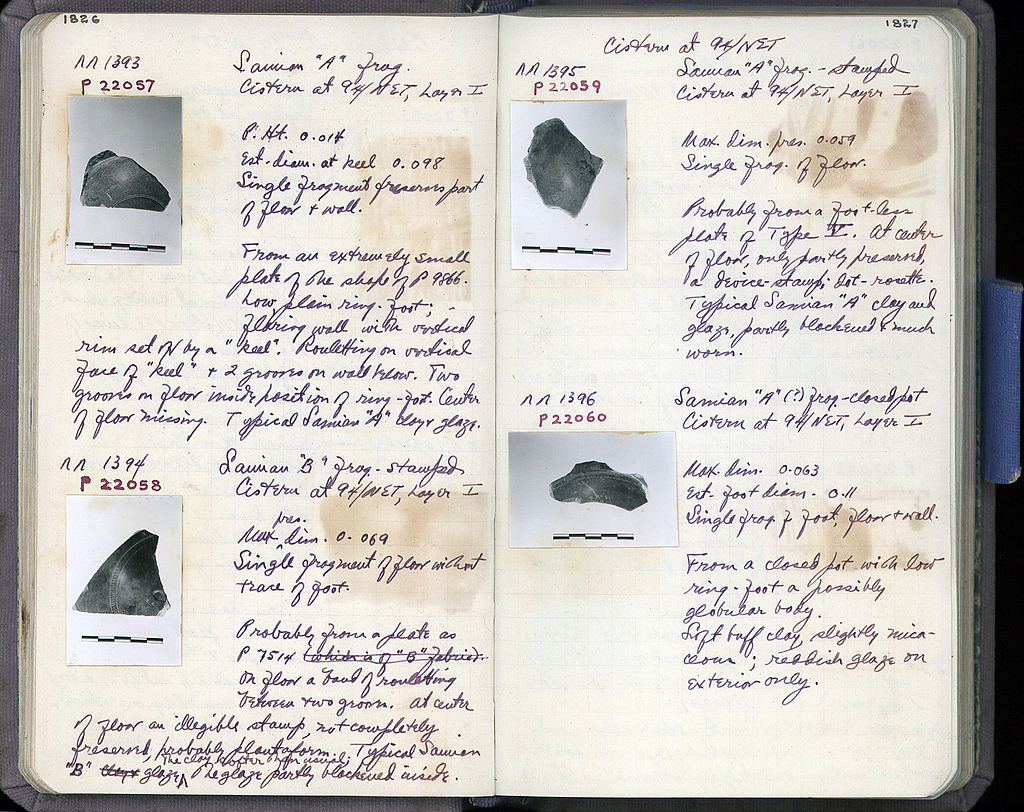 1826
ΛΛ 1393
P 22057
Samian "A" frag.
Cistern at 94/NET, Layer I
P. Ht. 0.014
Est. diam. at keel 0.098
Single fragment preserves part
of floor + wall.
From an extremely small
plate of the shape of P 9866.
Low plain ring-foot;
flaring wall with vertical
rim set off by a "keel". Rouletting on vertical
face of "keel" + 2 grooves on wall below. Two
grooves on floor inside position of ring-foot. Center
of floor missing. Typical Samian "A" clay + glaze.
ΛΛ 1394
P 22058
Samian "B" frag - stamped
Cistern at 94/NET, Layer I
pres.
Max. dim. 0.069
Single fragment of floor without
trace of foot.
Probably from a plate as
P 7514 (which is of "B" fabric).
On floor a band of rouletting
between two grooves. At center
of floor an illegible stamp, not completely
preserved, probably plantaform. Typical Samian
The clay softer than usual;
"B" clay + glaze, the glaze partly blackened inside.
1827
Cistern at 94/NET
ΛΛ 1395
P 22059
Samian "A" frag. - stamped
Cistern at 94/NET, Layer I
Max. dim. pres. 0.059
Single frag. of floor.
Probably from a foot-less
plate of Type V. At center
of floor, only partly preserved,
a device-stamp; dot-rosette.
Typical Samian "A" clay and
glaze, partly blackened + much
worn.
ΛΛ 1396
P 22060
Samian "A" (?) frag - closed pot
Cistern at 94/NET, Layer I
Max. dim. 0.063
Est. foot diam. 0.11
Single frag. of foot, floor + wall.
From a closed pot with low
ring-foot + possibly
globular body.
Soft buff clay, slightly mica-
ceous; reddish glaze on
exterior only.